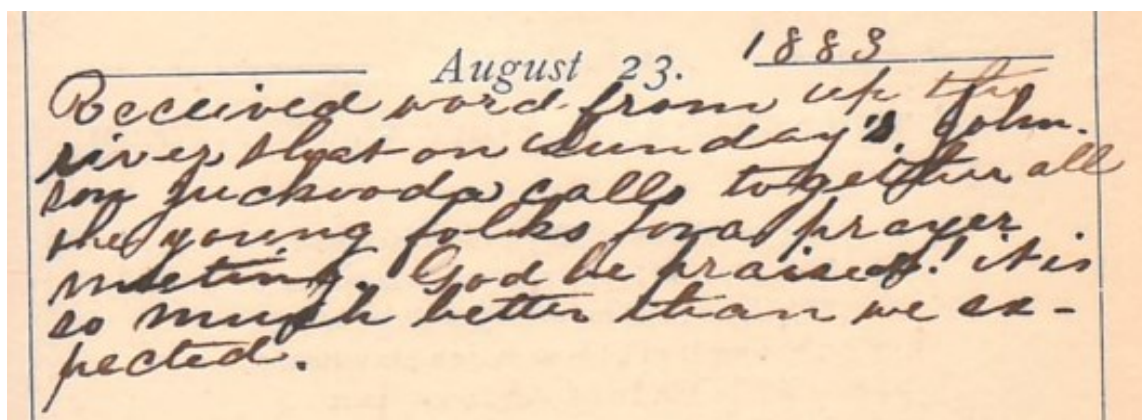 August 23. 1883
Received word from up the
river that on Sunday's, John-
son Juckwoda calls together all
the young folks for a prayer
meeting. God be praised! it is
so much better than we ex-
pected.